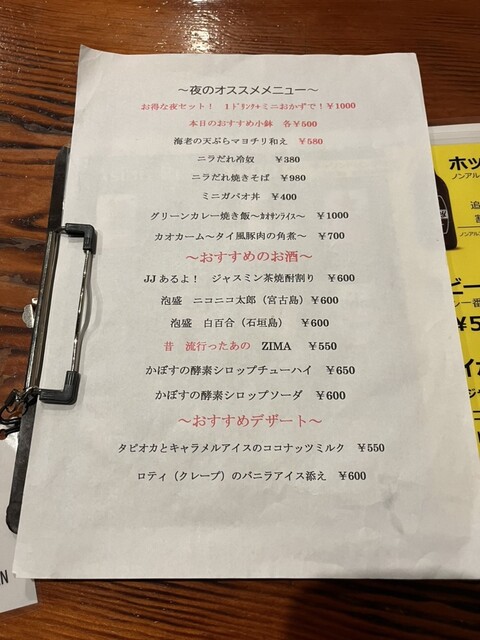 ～夜のオススメメニュー～
お得な夜セット！　1ﾄﾞﾘﾝｸ+ミニおかずで！¥1000
本日のおすすめ小鉢　各¥500
海老の天ぷらマヨチリ和え　¥580
ニラだれ冷奴　¥380
ニラだれ焼きそば　¥980
ミニガパオ丼　¥400
グリーンカレー焼き飯～ｶｵｻﾝﾗｲｽ～　¥1000
カオカーム～タイ風豚肉の角煮～　¥700
～おすすめのお酒～
JJあるよ！　ジャスミン茶焼酎割り　¥600
泡盛　ニコニコ太郎（宮古島）¥600
泡盛　白百合（石垣島）　¥600
昔　流行ったあの　ZIMA　¥550
かぼすの酵素シロップチューハイ　¥650
かぼすの酵素シロップソーダ　¥600
～おすすめデザート～
タピオカとキャラメルアイスのココナッツミルク　¥550
ロティ（クレープ）のバニラアイス添え　¥600
ホッ
ノンアル
追
割
ノンアル
ビー
レー番
¥5
イカ
N